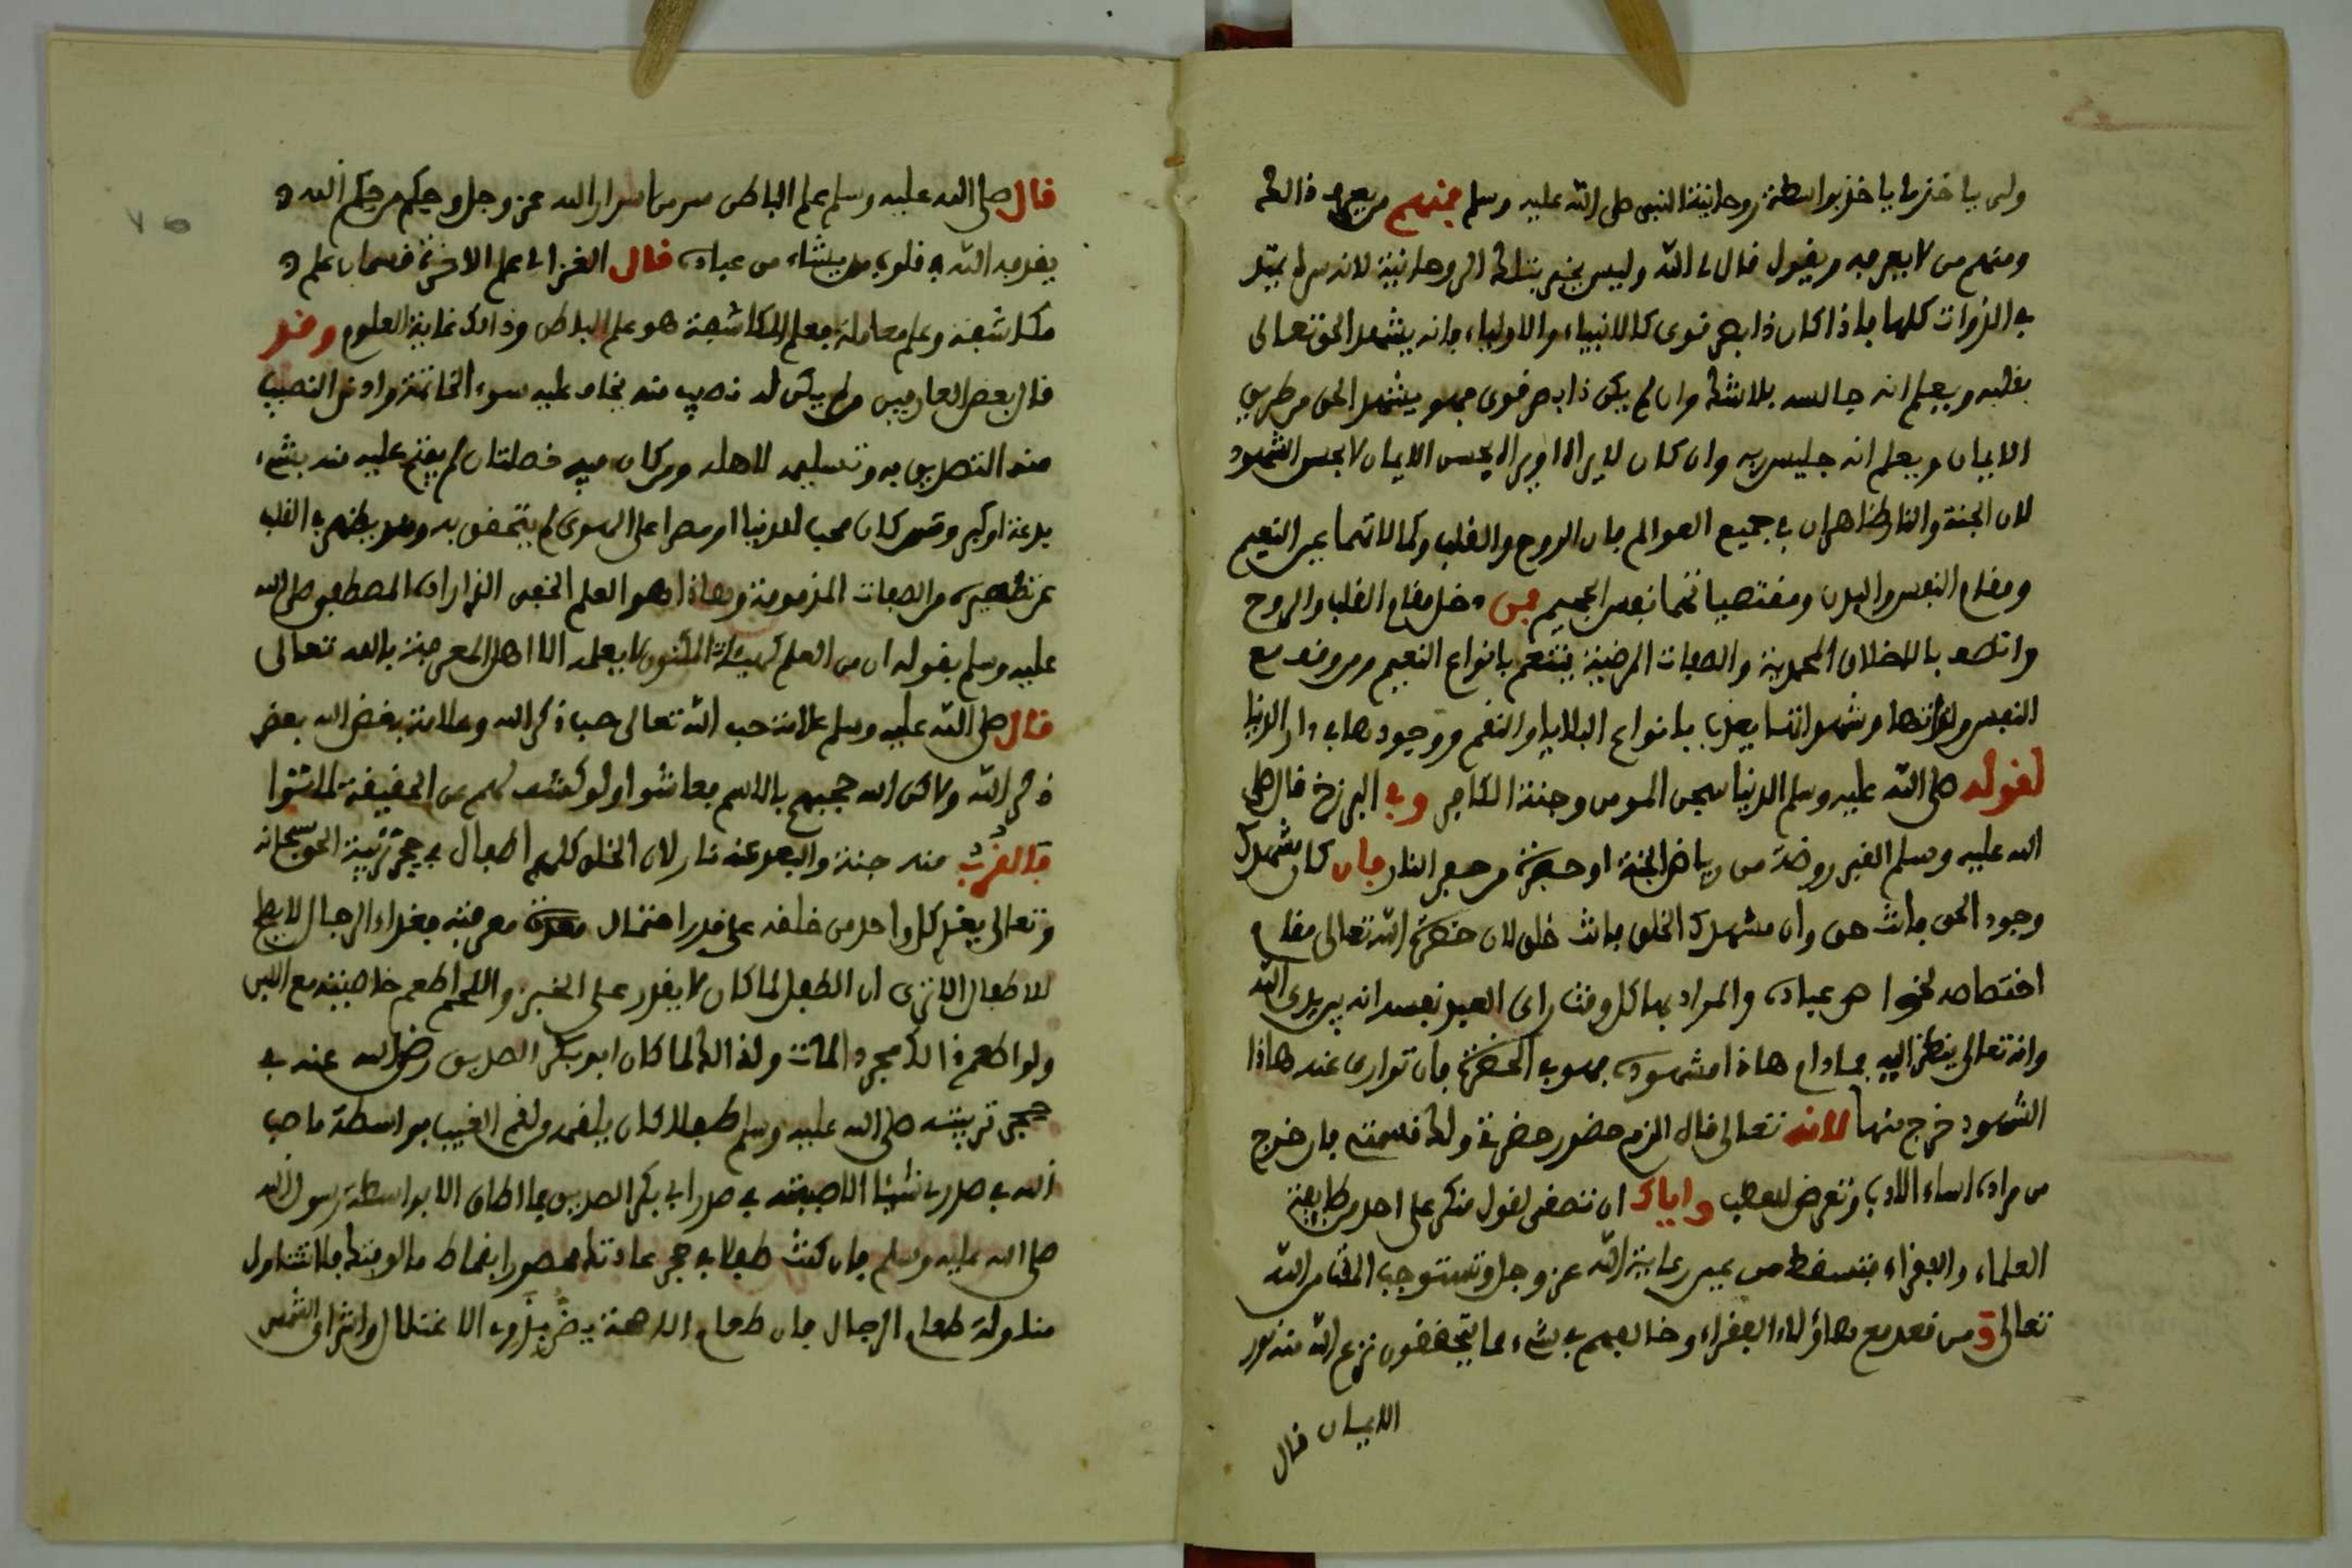 ولي ياخذ ما ياخذ بواسطة روحانية النبي صلى الله عليه وسلم فمنهم من يعرف ذالك
ومنهم من لا يعرفه ويقول قال لي الله وليس بخير بتلك الروحانية لانه سر
في الذوات كلها فاذا كان ذا بصر قوي كالانبياء والاولياء فانه يشهد الحق تعالى
بقلبه ويعلم انه جالسه بلا شك وان لم يكن ذا بصر قوي فهو يشهد الحق من طريق
الايمان ويعلم انه جليس ربه وان كان لا يراه او يراه بحس الايمان لا بحس الشهود
لان الجنة والنار ظاهران في جميع العوالم فان الروح والقلب وكمالاتهما عين النعيم
ومقام النفس والبدن ومقتضياتهما نفس الجحيم فمن دخل مقام القلب والروح
واتصف بالاخلاق المحمدية والصفات المرضية يتنعم بانواع النعيم ومن وقف مع
النفس ولذاتها وشهواتها يعذب بانواع البلايا والنقم ووجودها في دار الدنيا
لقوله صلى الله عليه وسلم الدنيا سجن المومن وجنة الكافر وفي البرزخ قال صلى
الله عليه وسلم القبر روضة من رياض الجنة او حفرة من حفر النار فان كان مشهدك
وجود الحق فانت حق وان مشهدك الخلق فانت خلق لان حضرة الله تعالى مقام
اختصاصه لخواص عباده والمراد بها كل وقت راى العبد نفسه انه بين يدي الله
وانه تعالى ينظر اليه فما دام هاذا مشهوده فهو في الحضرة فان توارى عنه هاذا
الشهود خرج منها لانه تعالى قال الزم حضور حضرتي ولك قسمته فان خرج
من مراده اساء الادب وتعرض للعطب واياك ان تصغي لقول منكر على احد من طايفة
العلماء والفقراء فتسقط من عين رعاية الله عز وجل وتستوجب المقت من الله
تعالى ومن قعد مع هاؤلاء الفقراء وخالفهم في شيء مما يتحققون نزع الله منه نور
الايمان قال
قال صلى الله عليه وسلم علم الباطن سر من اسرار الله عز وجل وحكم من حكم الله
يقذفه الله في قلوب من يشاء من عباده قال الغزالي علم الاخرة قسمان علم
مكاشفة وعلم معاملة فعلم المكاشفة هو علم الباطن وذالك غاية العلوم وقد
قال بعض العارفين من لم يكن له نصيب منه يخاف عليه سوء الخاتمة وادنى النصيب
منه التصديق به وتسليمه لاهله ومن كان فيه خصلتان لم يفتح عليه منه بشيء
بدعة او كبر ومن كان محبا للدنيا او مصرا على الهوى لم يتحقق به وهو يظهر في القلب
عن تطهيره من الصفات المذمومة وهاذا هو العلم الخفي الذي اراده المصطفى صلى الله
عليه وسلم بقوله ان من العلم كهيئة المكنون لا يعلمه الا اهل المعرفة بالله تعالى
قال صلى الله عليه وسلم علامة حب الله تعالى حب ذكر الله وعلامة بغض الله بغض
ذكر الله ولاكن الله حجبهم بالاسم فعاشوا ولو كشف لهم عن الحقيقة لماتوا
فالقرب منه جنة والبعد عنه نار لان الخلق كلهم اطفال في حجر تربية الحق سبحانه
وتعالى يغذي كل واحد من خلقه على قدر احتمال معدة معرفته فغذاء الرجال لا يصلح
للاطفال الا ترى ان الطفل لما كان لا يقدر على الخبز واللحم اطعم خاصيته مع اللبن
ولو اطعم ذالك مجردا لمات ولذالك لما كان ابو بكر الصديق رضي الله عنه في
حجر تربيته صلى الله عليه وسلم طفلا كان يلقمه من لقم الغيب بواسطة ما صب
الله في صدري شيئا الا صببته في صدر ابي بكر الصديق فما اطاق الا بواسطة رسول الله
صلى الله عليه وسلم فان كنت طفلا في حجر عادتك محصورا بقماط مالوفتك فلا تتناول
مناولة طعام الرجال فان طعام الادهنة يضر بذوي الاعتلال واشراق الشمس